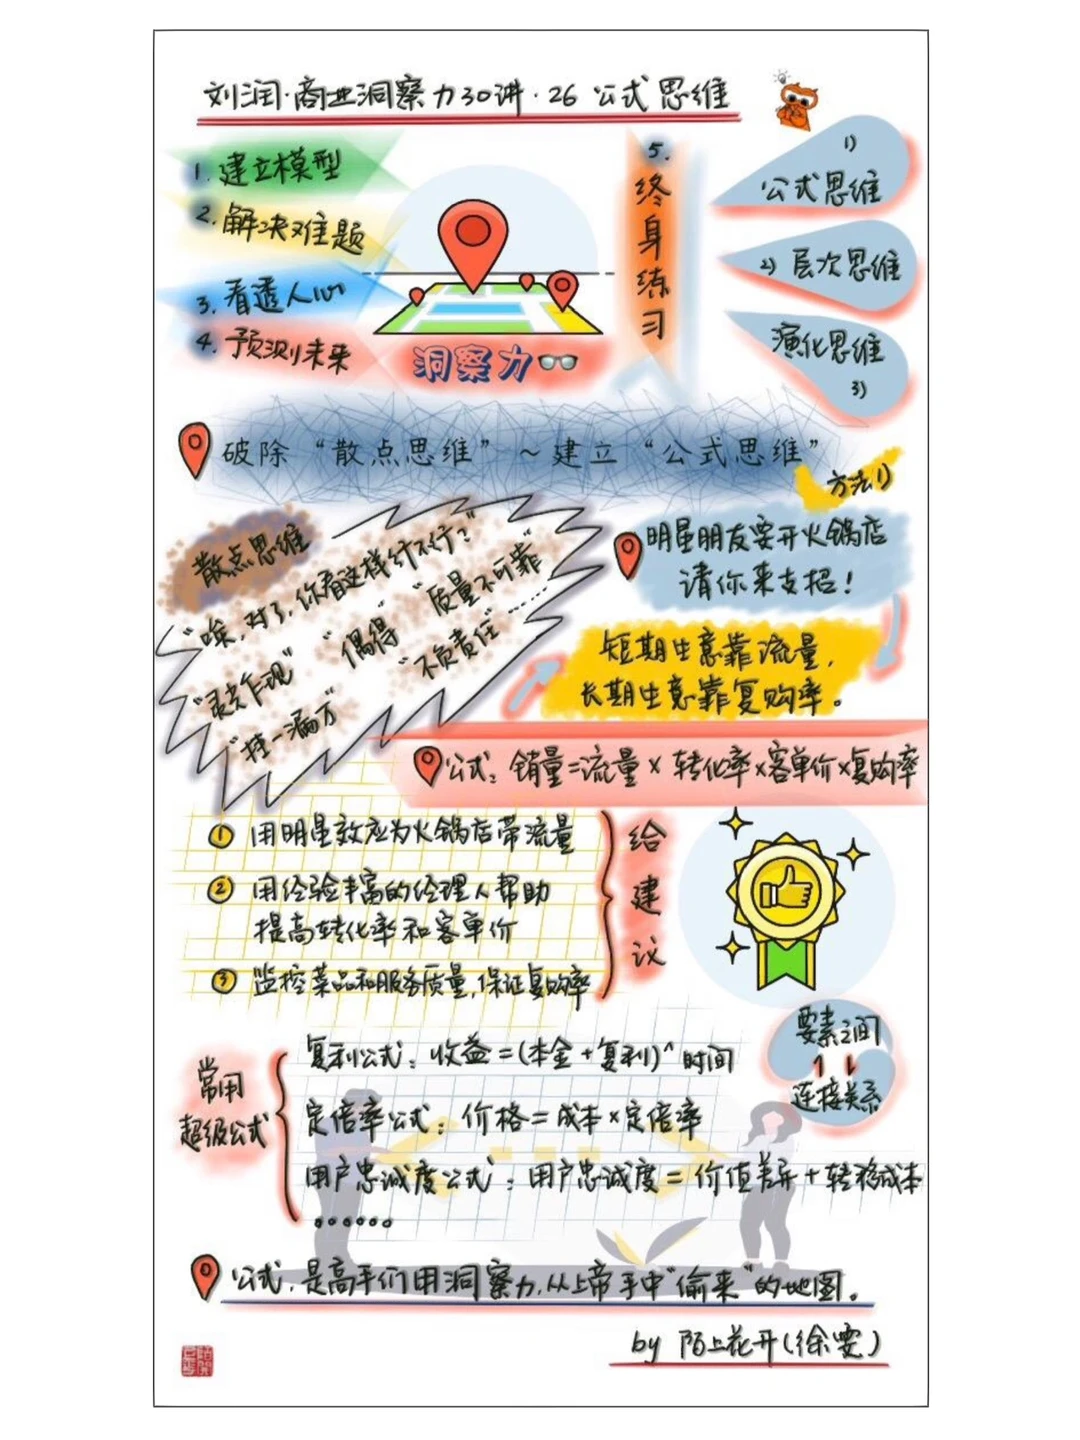 刘润·商业洞察力30讲·26 公式思维
1.建立模型
2.解决难题
3.看透人心
4.预测未来
洞察力
5.终身练习
1)
公式思维
2)层次思维
演化思维
3)
破除“散点思维”~建立“公式思维”
方法1)
散点思维
“唉,对了,你看这样行不行?”
“灵光乍现”
“偶得”
“质量不可靠”
“挂一漏万”
“不负责任”……
明星朋友要开火锅店
请你来支招!
短期生意靠流量,
长期生意靠复购率。
公式:销量=流量×转化率×客单价×复购率
① 用明星效应为火锅店带流量
② 用经验丰富的经理人帮助
提高转化率和客单价
③ 监控菜品和服务质量,保证复购率
给建议
要素之间
连接关系
常用
超级公式
复利公式:收益=(本金+复利)^时间
定倍率公式:价格=成本×定倍率
用户忠诚度公式:用户忠诚度=价值差异+转移成本
……
公式,是高手们用洞察力,从上帝手中“偷来”的地图。
by 陌上花开(徐雯)